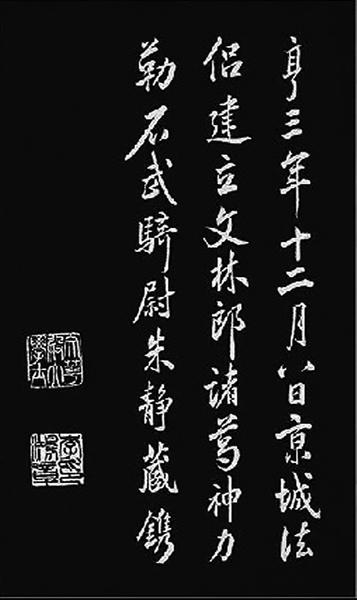 亨三年十二月八日京城法
侣建立文林郎諸葛神力
勒石武騎尉朱靜藏鐫